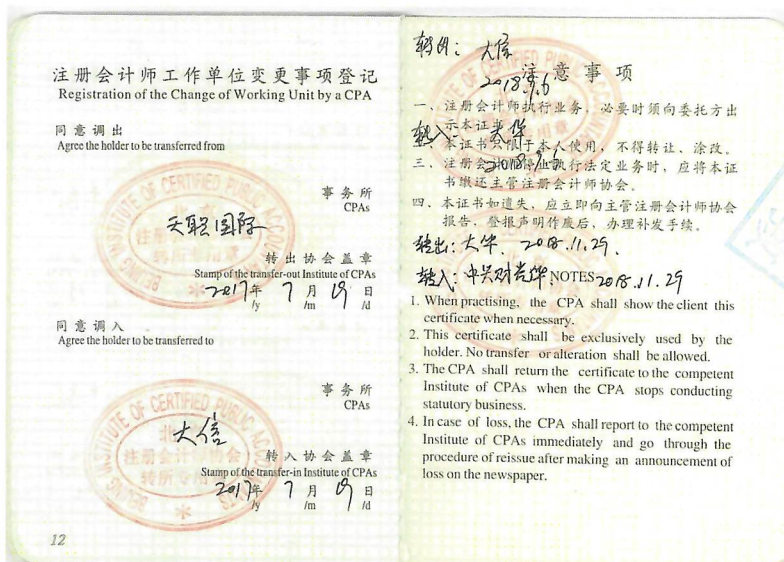 注册会计师工作单位变更事项登记
Registration of the Change of Working Unit by a CPA
同意调出
Agree the holder to be transferred from
事务所
CPAs
天职国际
转出协会盖章
Stamp of the transfer-out Institute of CPAs
2017年 7月 19日
/y /m /d
同意调入
Agree the holder to be transferred to
事务所
CPAs
大信
转入协会盖章
Stamp of the transfer-in Institute of CPAs
2017年 7月 19日
/y /m /d
BEIJING INSTITUTE OF CERTIFIED PUBLIC ACCOUNTANTS
12
转出：大信
2018.9.6
注意事项
一、注册会计师执行业务，必要时须向委托方出
示本证书。
转入：大华
本证书只限于本人使用，不得转让、涂改。
2018.9.6
三、注册会计师停止执行法定业务时，应将本证
书缴还主管注册会计师协会。
四、本证书如遗失，应立即向主管注册会计师协会
报告，登报声明作废后，办理补发手续。
转出：大华 2018.11.29.
转入：中兴财光华 2018.11.29
NOTES
1. When practising, the CPA shall show the client this
certificate when necessary.
2. This certificate shall be exclusively used by the
holder. No transfer or alteration shall be allowed.
3. The CPA shall return the certificate to the competent
Institute of CPAs when the CPA stops conducting
statutory business.
4. In case of loss, the CPA shall report to the competent
Institute of CPAs immediately and go through the
procedure of reissue after making an announcement of
loss on the newspaper.